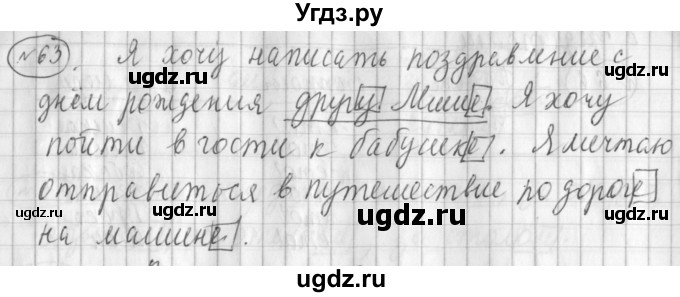 Угдз.ру
№63. Я хочу написать поздравление с
ugdz.ru ugdz.ru
днём рождения другу Мише. Я хочу
ugdz.ru
пойти в гости к бабушке. Я мечтаю
ugdz.ru ugdz.ru
отправиться в путешествие по дороге
ugdz.ru
на машине.
ugdz.ru ugdz.ru